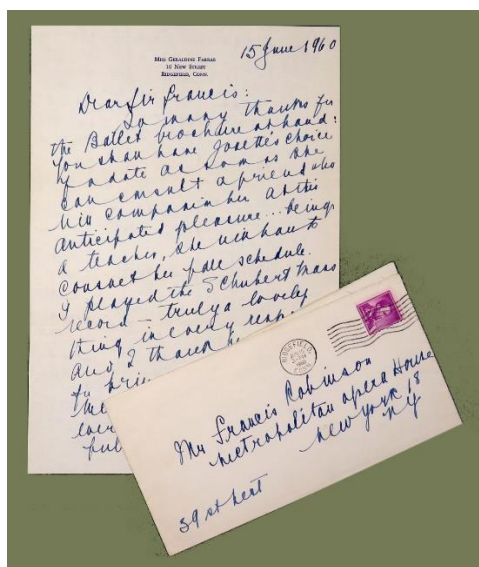 Miss Geraldine Farrar
10 New Street
Ridgefield, Conn.
15 June 1960
Dear Sir Francis:
So many thanks for
the Ballet brochure at hand:
You shall have Josette's choice
of date as soon as she
can consult a friend who
will companion her at this
anticipated pleasure... Being
a teacher, she will have to
consult her fall schedule.
I played the Schubert Mass
record – truly a lovely
thing in every
and I thank
RIDGEFIELD
CONN.
Mr Francis Robinson
Metropolitan Opera House
New York 18
NY
39 st West